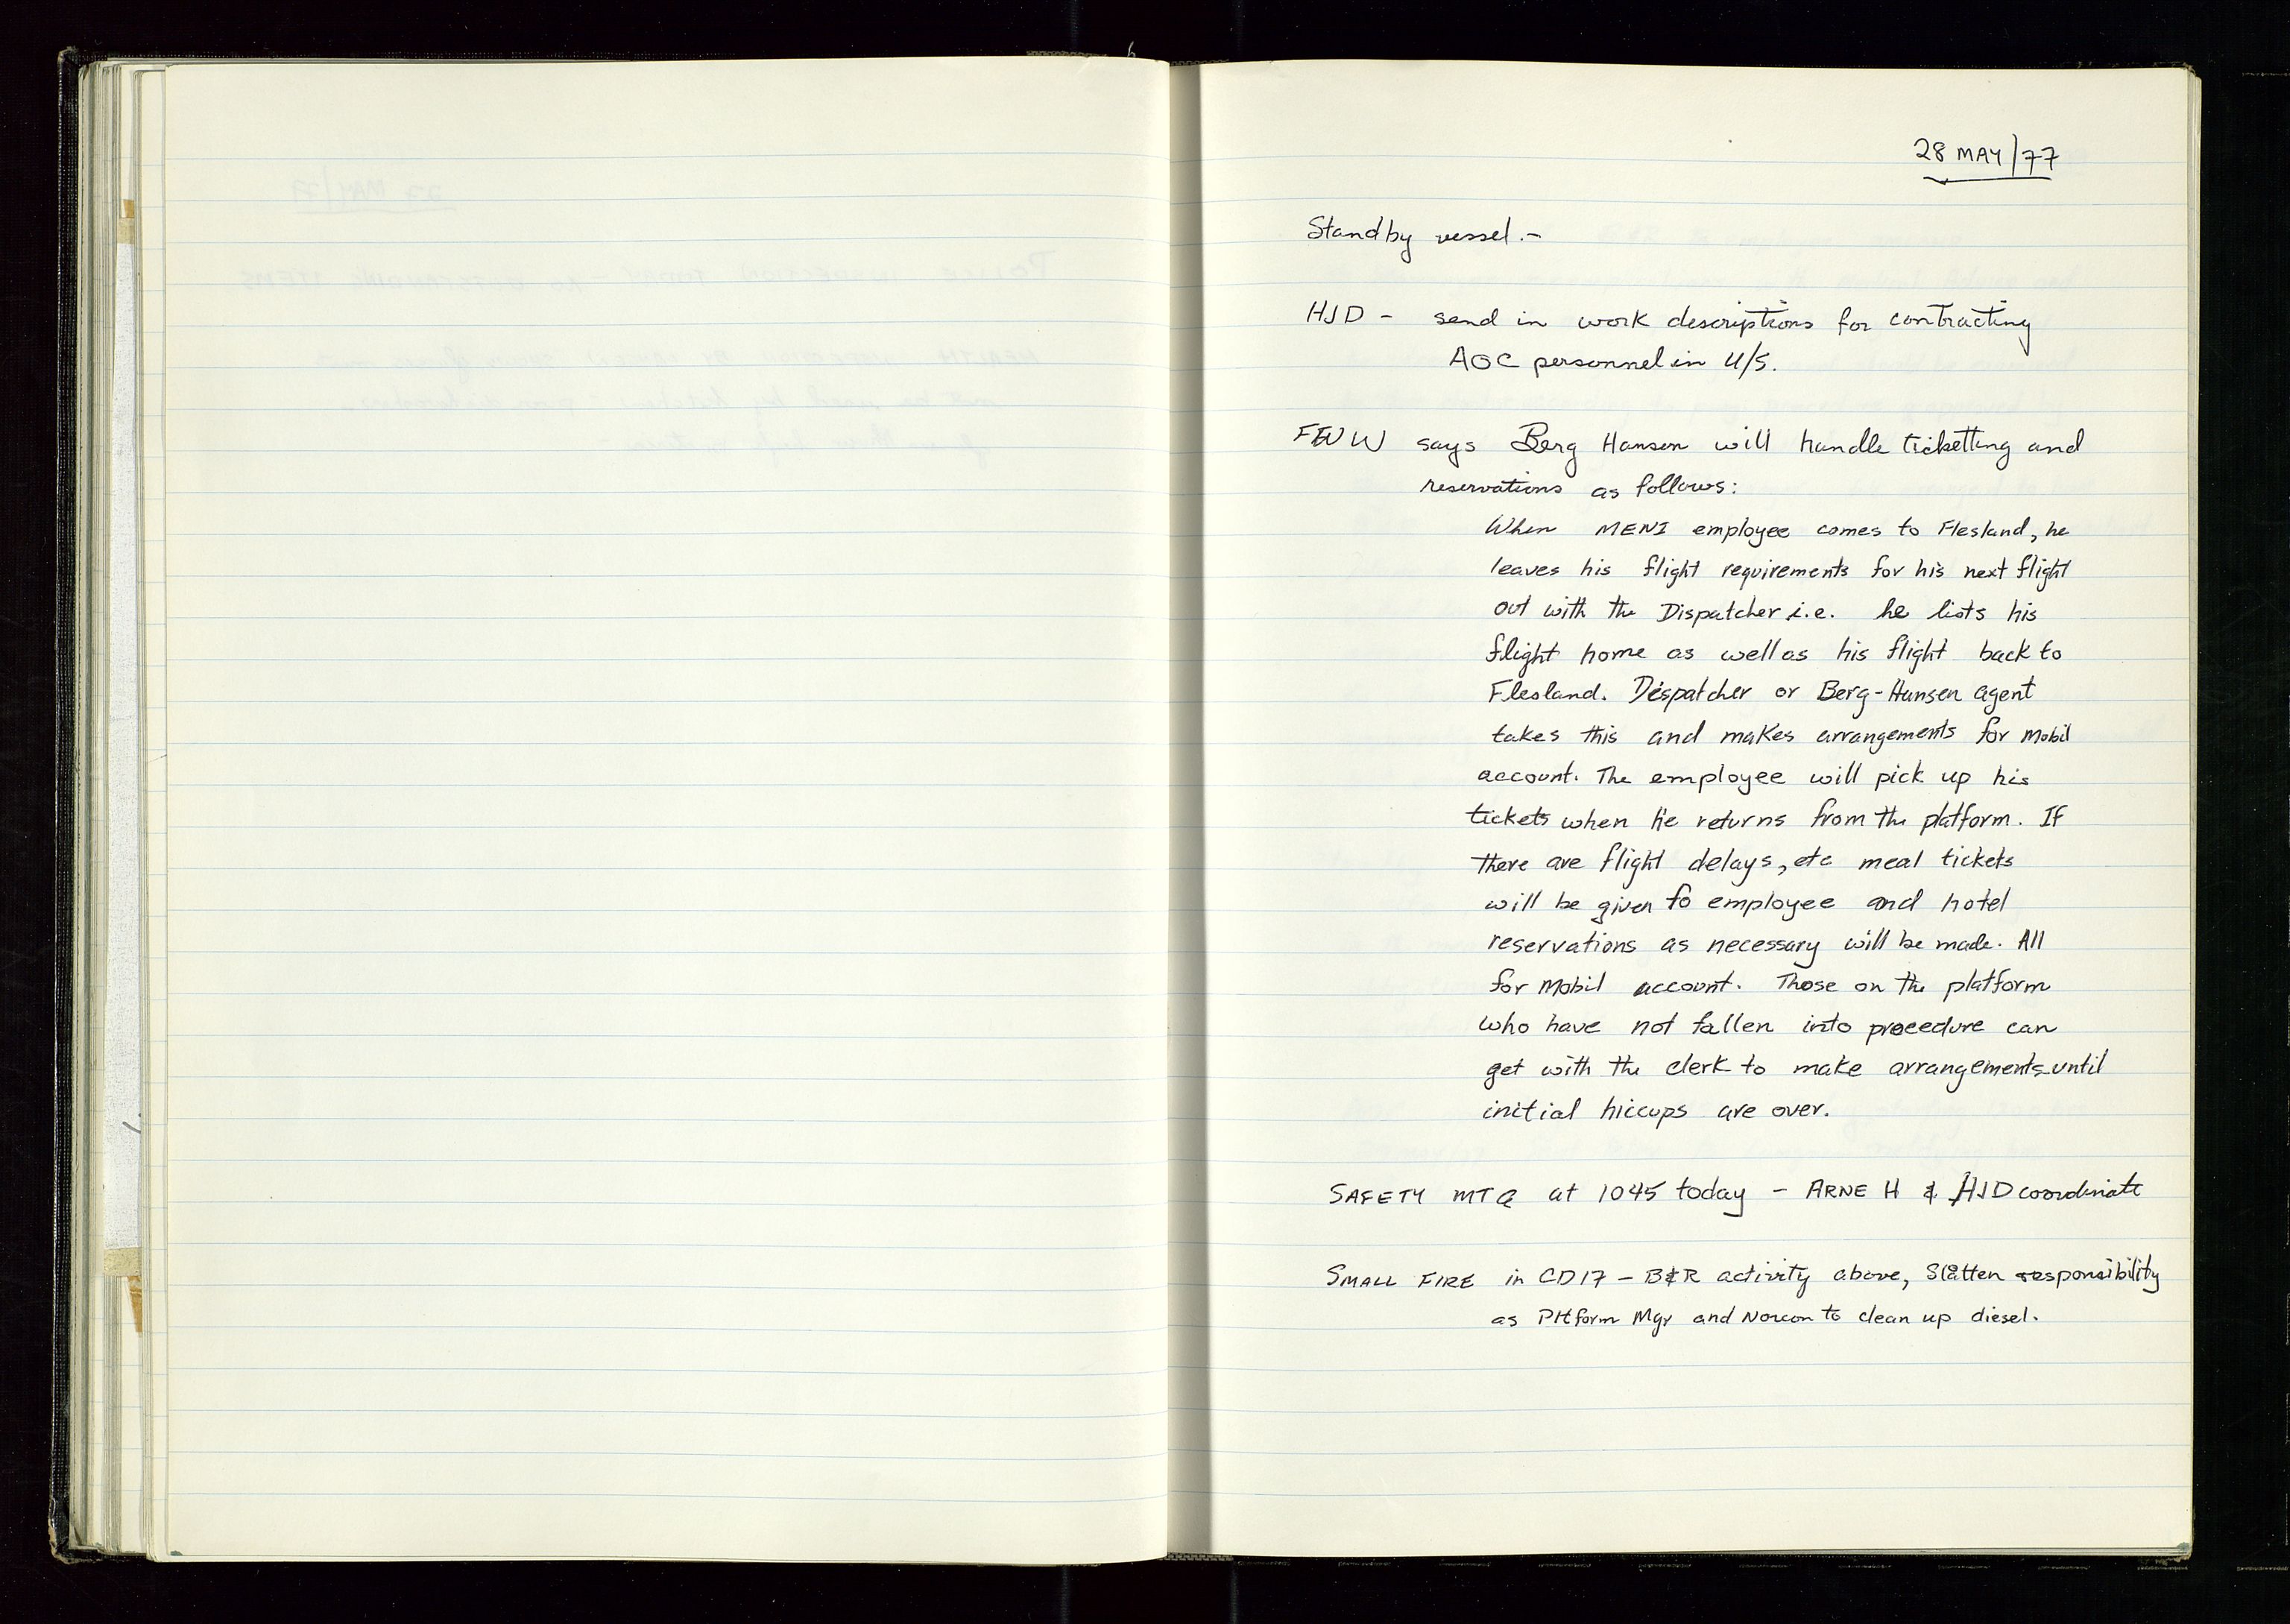 28 MAY/77
Standby vessel.-
HJD - send in work descriptions for contracting
AOC personnel in U/S.
says Berg Hansen will handle ticketting and
reservations as follows:
When MENI employee comes to Flesland, he
leaves his flight requirements for his next flight
out with the Dispatcher i.e. he lists his
flight home as well as his flight back to
Flesland. Dispatcher or Berg-Hansen agent
takes this and makes arrangements for Mobil
account. The employee will pick up his
tickets when he returns from the platform. If
there are flight delays, etc meal tickets
will be given to employee and hotel
reservations as necessary will be made. All
for Mobil account. Those on the platform
who have not fallen into procedure can
get with the clerk to make arrangements until
initial hiccups are over.
SAFETY MTG at 1045 today - ARNE H & HJD coordinate
SMALL FIRE in CD17 - B&R activity above, Slåtten responsibility
as Pltform Mgr and Norcon to clean up diesel.